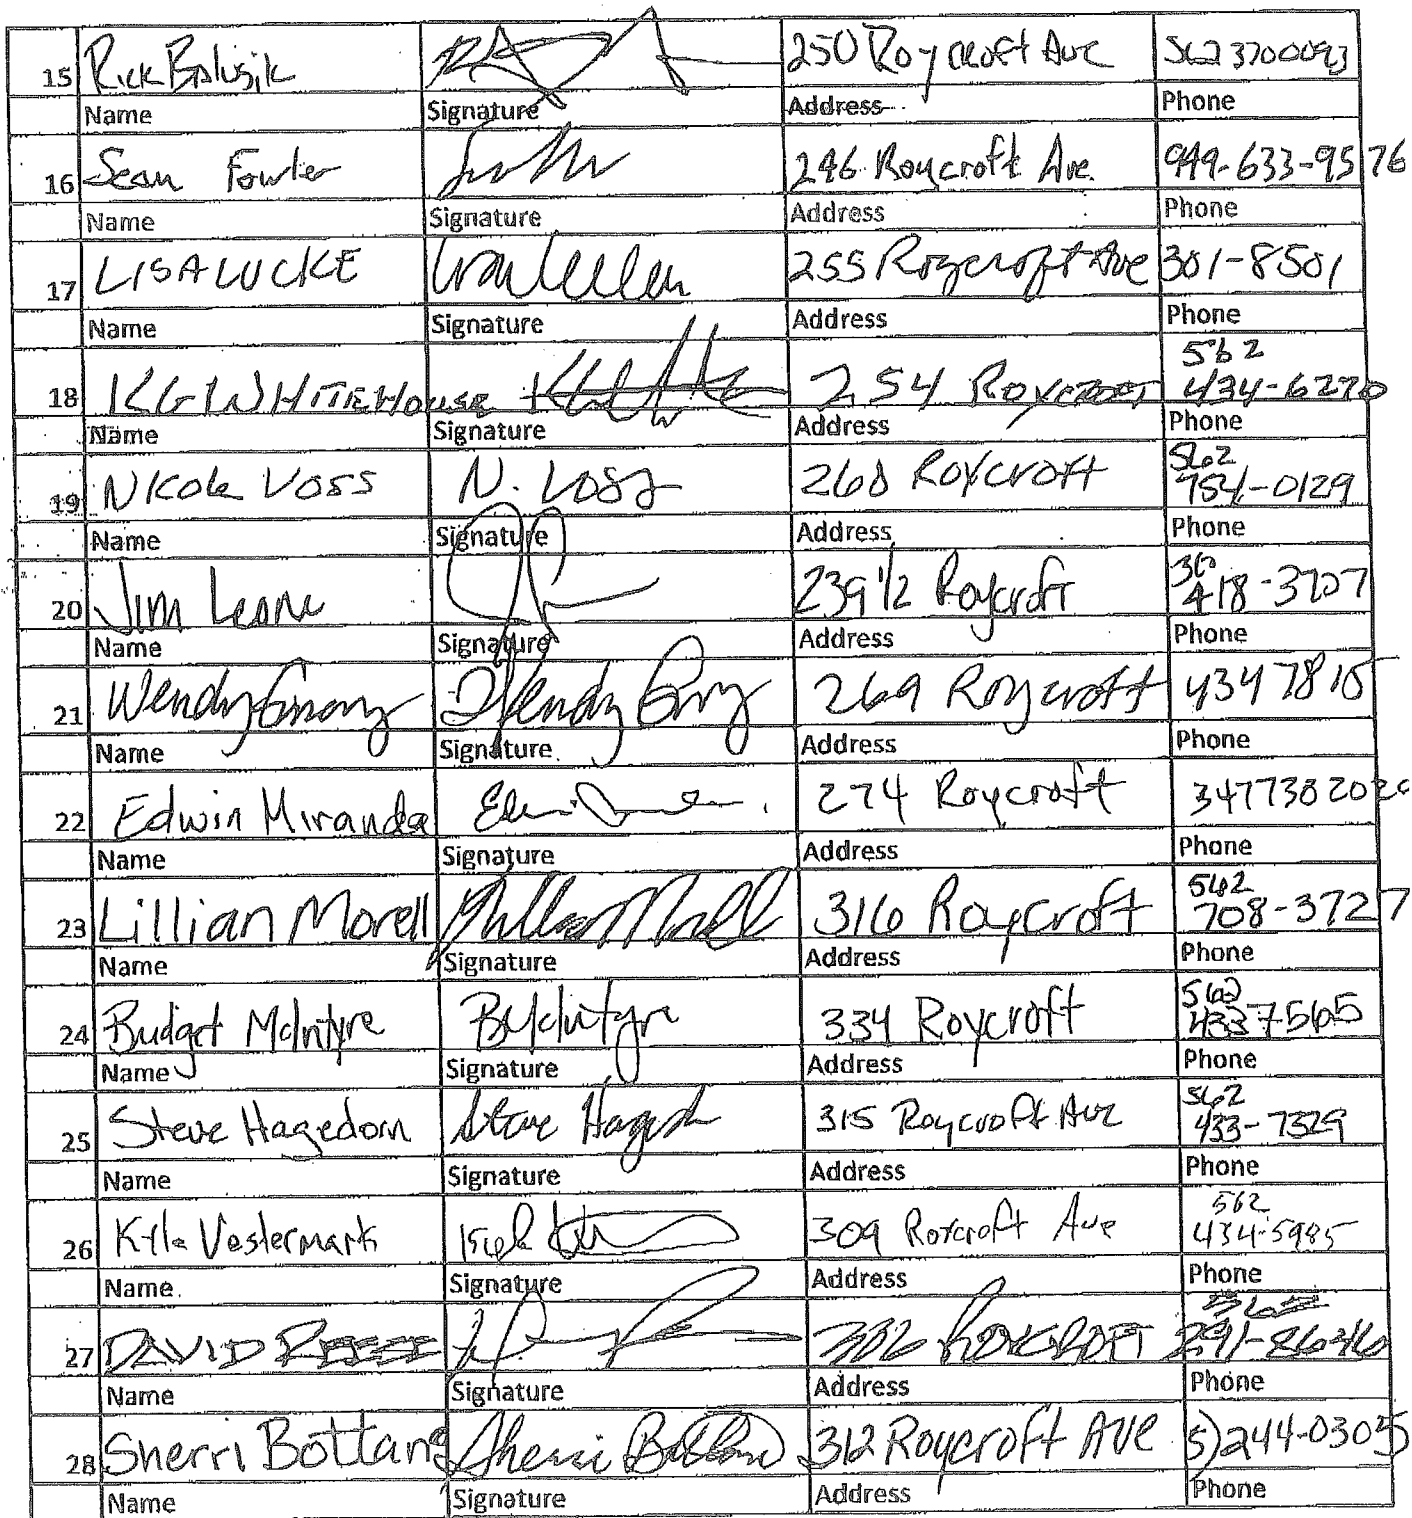 15 Rick 250 Roycroft Ave 562 3700093
Name Signature Address Phone
16 Sean Fowler 246 Roycroft Ave. 949-633-9576
Name Signature Address Phone
17 LISA LUCKE 255 Roycroft Ave 301-8501
Name Signature Address Phone
562
18 KG WHITEHOUSE 254 ROYCROFT 434-6270
Name Signature Address Phone
562
19 Nicole Voss N. Voss 260 Roycroft 754-0129
Name Signature Address Phone
20 Jim Leone 239 1/2 Roycroft 418-3707
Name Signature Address Phone
21 Wendy Wendy 269 Roycroft 434 7815
Name Signature Address Phone
22 Edwin Miranda 274 Roycroft 347738202
Name Signature Address Phone
562
23 Lillian Morell 316 Roycroft 708-3727
Name Signature Address Phone
562
24 Bridget McIntyre BMcIntyre 334 Roycroft 433 7565
Name Signature Address Phone
562
25 Steve Hagedorn Steve 315 Roycroft Ave 433-7329
Name Signature Address Phone
562
26 Kyle Vestermark Kyle 309 Roycroft Ave 434-5985
Name Signature Address Phone
27 DAVID REESE ROYCROFT
Name Signature Address Phone
28 Sherri Sherri 312 Roycroft AVE 5)244-0305
Name Signature Address Phone